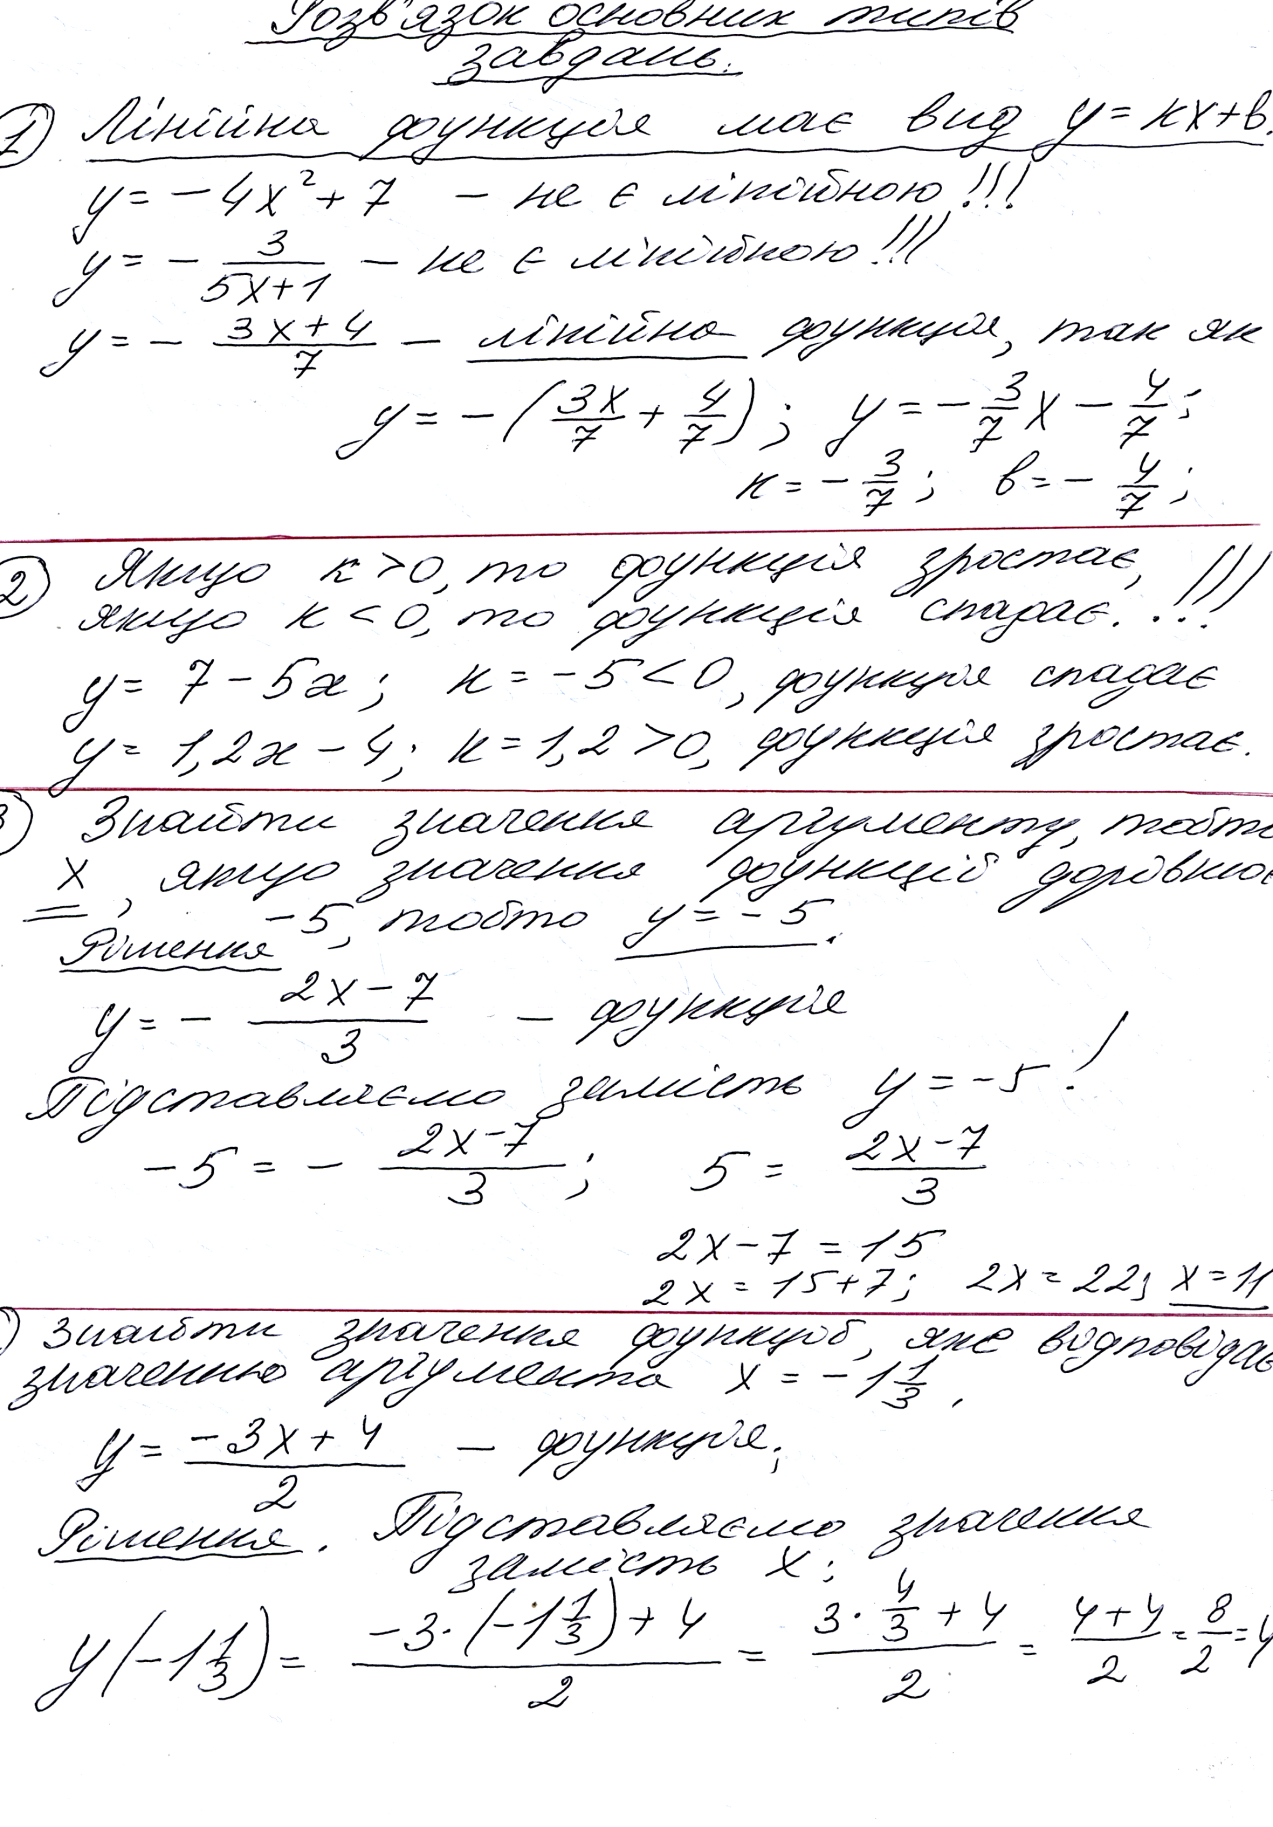 Розв'язок основних типів
завдань.
1) Лінійна функція має вид y = кx + в.
y = -4x² + 7 - не є лінійною!!!
y = - 3/(5x+1) - не є лінійною!!!
y = - (3x+4)/7 - лінійна функція, так як
y = - (3x/7 + 4/7); y = - 3/7 x - 4/7;
к = - 3/7; в = - 4/7;
2) Якщо к > 0, то функція зростає,
якщо к < 0, то функція спадає. !!!
y = 7 - 5x; к = -5 < 0, функція спадає
y = 1,2x - 4; к = 1,2 > 0, функція зростає.
3) Знайти значення аргументу, тобто
x, якщо значення функції дорівнює
-5, тобто y = -5.
Рішення
y = - (2x-7)/3 - функція
Підставляємо замість y = -5!
-5 = - (2x-7)/3; 5 = (2x-7)/3
2x - 7 = 15
2x = 15 + 7; 2x = 22; x = 11
) Знайти значення функції, яке відповідає
значенню аргумента x = -1 1/3.
y = (-3x+4)/2 - функція;
Рішення. Підставляємо значення
замість x:
y(-1 1/3) = (-3·(-1 1/3)+4)/2 = (3·4/3+4)/2 = (4+4)/2 = 8/2 = 4